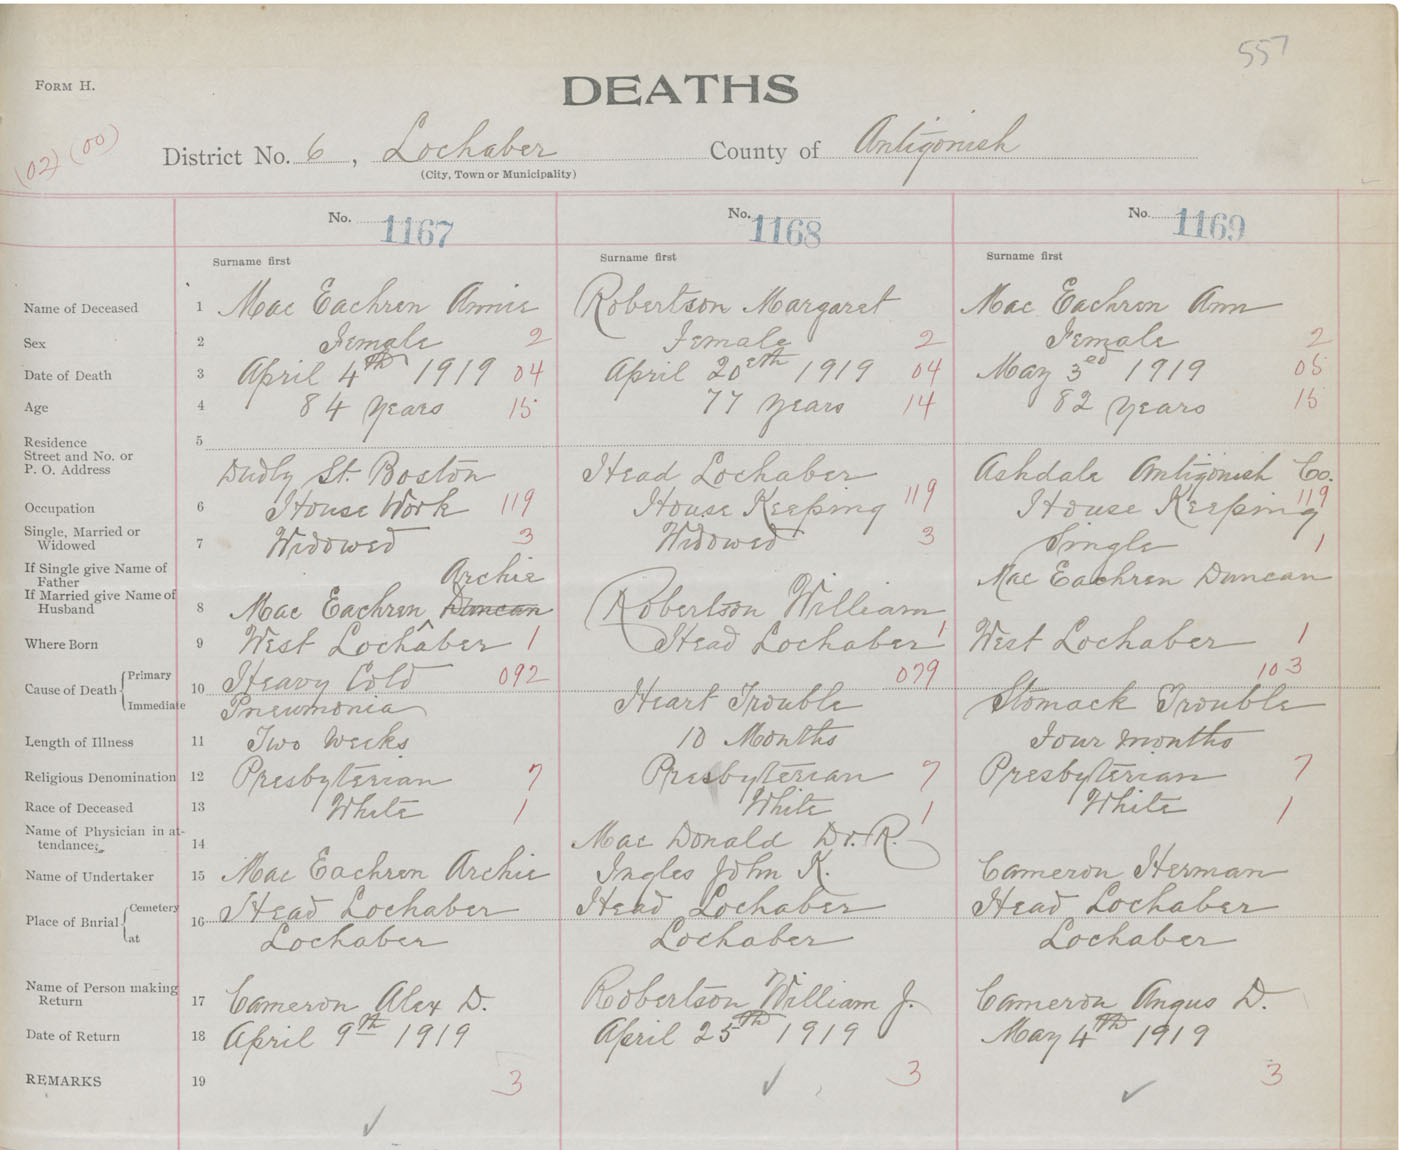 557
FORM H.
DEATHS
(02) (00)
District No. 6, Lochaber County of Antigonish
(City, Town or Municipality)
No. 1167 No. 1168 No. 1169
Surname first Surname first Surname first
Name of Deceased 1 Mac Eachren Annie Robertson Margaret Mac Eachren Ann
Sex 2 Female 2 Female 2 Female 2
Date of Death 3 April 4th 1919 04 April 20eth 1919 04 May 3ed 1919 05
Age 4 84 years 15 77 years 14 82 years 15
Residence 5
Street and No. or
P. O. Address Dudly St. Boston Head Lochaber Ashdale Antigonish Co.
Occupation 6 House Work 119 House Keeping 119 House Keeping 119
Single, Married or
Widowed 7 Widowed 3 Widowed 3 Single 1
If Single give Name of
Father Archie Mac Eachren Duncan
If Married give Name of
Husband 8 Mac Eachren Duncan Robertson William
Where Born 9 West Lochaber 1 Head Lochaber 1 West Lochaber 1
Cause of Death Primary 10 Heavy Cold 092 079 103
Immediate Pneumonia Heart Trouble Stomack Trouble
Length of Illness 11 Two weeks 10 Months Four months
Religious Denomination 12 Presbyterian 7 Presbyterian 7 Presbyterian 7
Race of Deceased 13 White 1 White 1 White 1
Name of Physician in at-
tendance 14 Mac Donald Dr. R.
Name of Undertaker 15 Mac Eachren Archie Ingles John K. Cameron Herman
Place of Burial Cemetery 16 Head Lochaber Head Lochaber Head Lochaber
at Lochaber Lochaber Lochaber
Name of Person making
Return 17 Cameron Alex D. Robertson William J. Cameron Angus D.
Date of Return 18 April 9th 1919 April 25th 1919 May 4th 1919
REMARKS 19 3 3 3